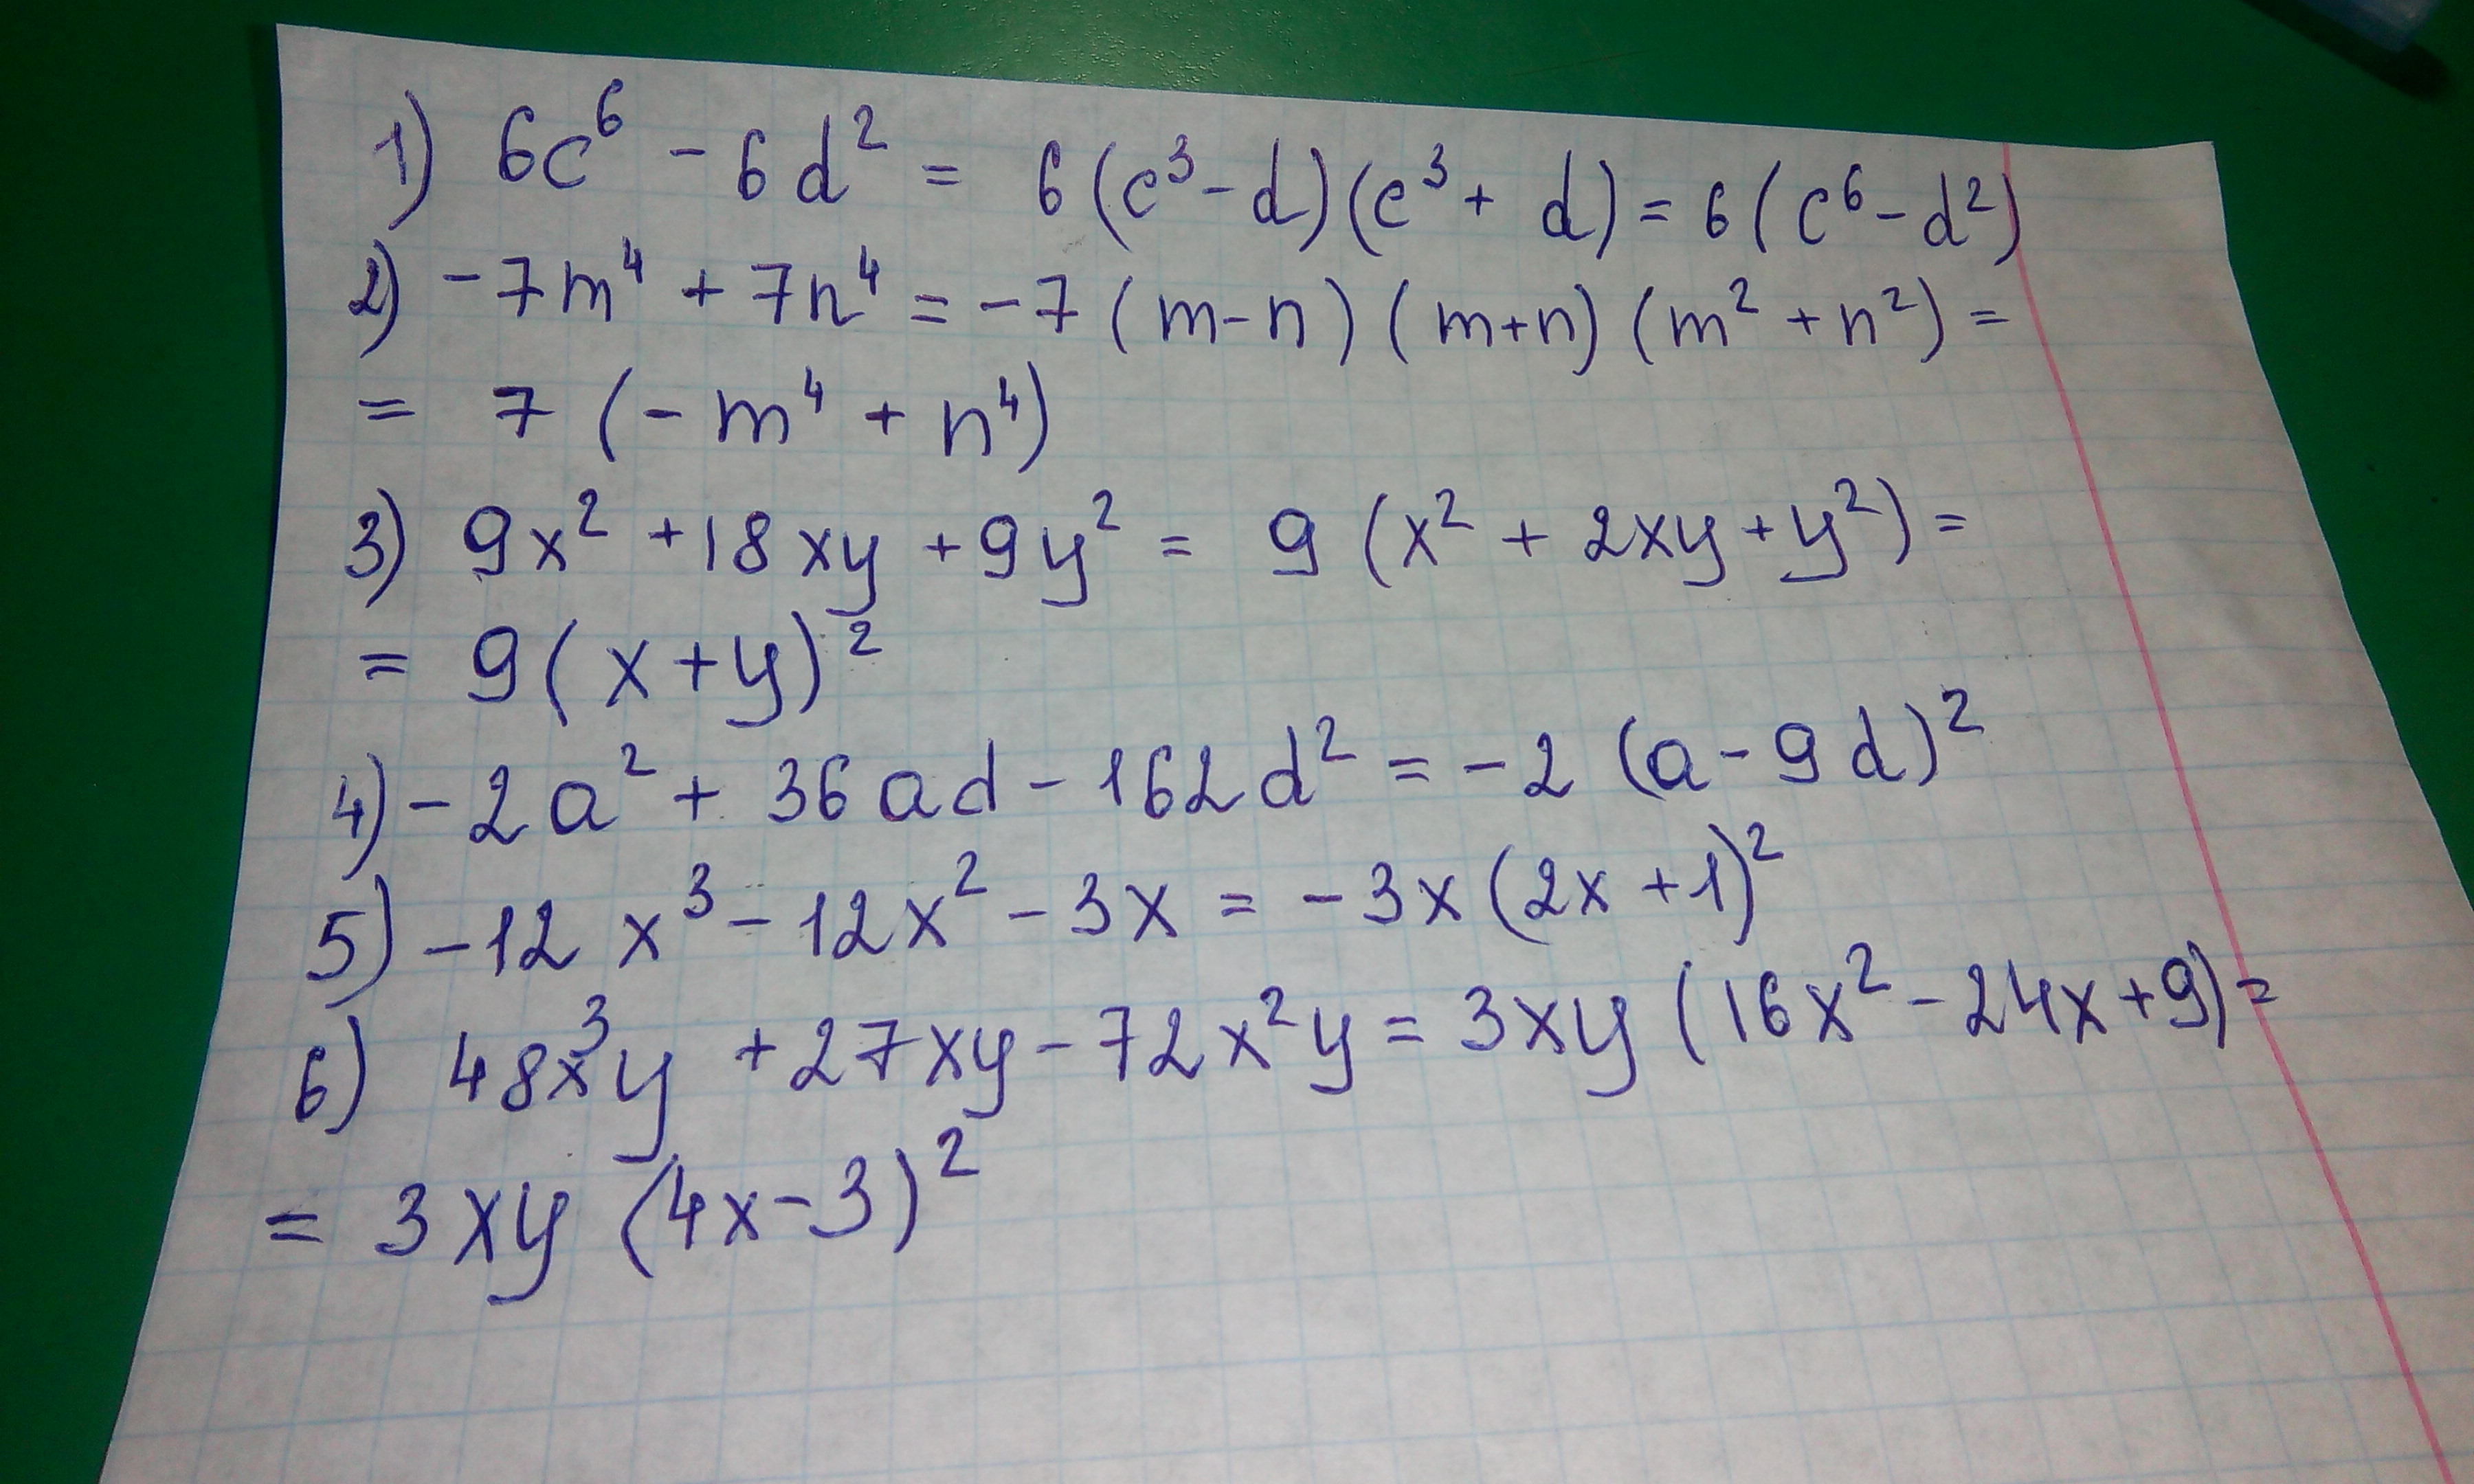 1) 6c⁶ - 6d² = 6(c³ - d)(c³ + d) = 6(c⁶ - d²)
2) -7m⁴ + 7n⁴ = -7(m - n)(m + n)(m² + n²) =
= 7(-m⁴ + n⁴)
3) 9x² + 18xy + 9y² = 9(x² + 2xy + y²) =
= 9(x + y)²
4) -2a² + 36ad - 162d² = -2(a - 9d)²
5) -12x³ - 12x² - 3x = -3x(2x + 1)²
6) 48x³y + 27xy - 72x²y = 3xy(16x² - 24x + 9) =
= 3xy(4x - 3)²